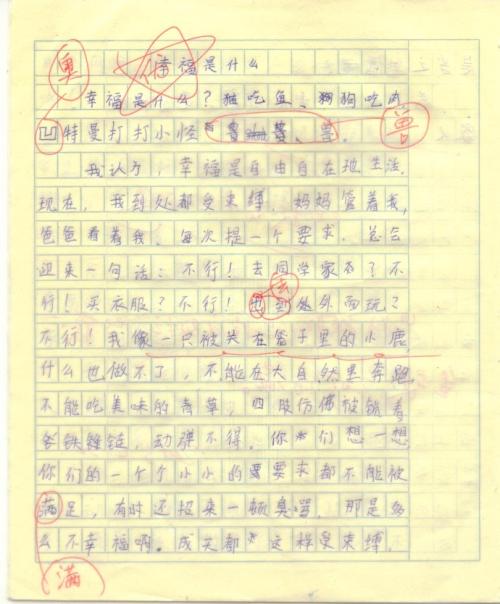 幸福是什么
幸福是什么？猫吃鱼、狗狗吃肉
凹特曼打打小怪兽。
我认为，幸福是自由自在地生活。
现在，我到处都受束缚，妈妈管着我，
爸爸看着我，每次提一个要求，总会
迎来一句话：不行！去同学家不？不
行！买衣服？不行！去处外面玩？
不行！我像一只被关在笼子里的小鹿，
什么也做不了，不能在大自然里奔跑
不能吃美味的青草，四肢仿佛被锁着
铁锁链，动弹不得。你们想一想，
你们的一个个小小的要求都不能被
满足，有时还招来一顿臭骂，那是多
么不幸福啊。成天都这样受束缚，
奥
兽
满